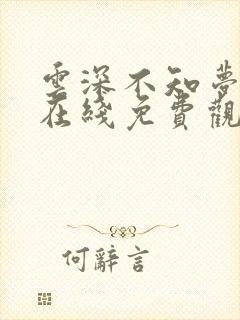 雲深不知夢
在綫免費觀
何辭言